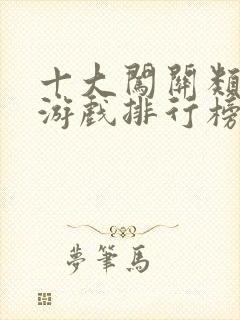 十大闖關類
游戲排行榜
夢筆馬